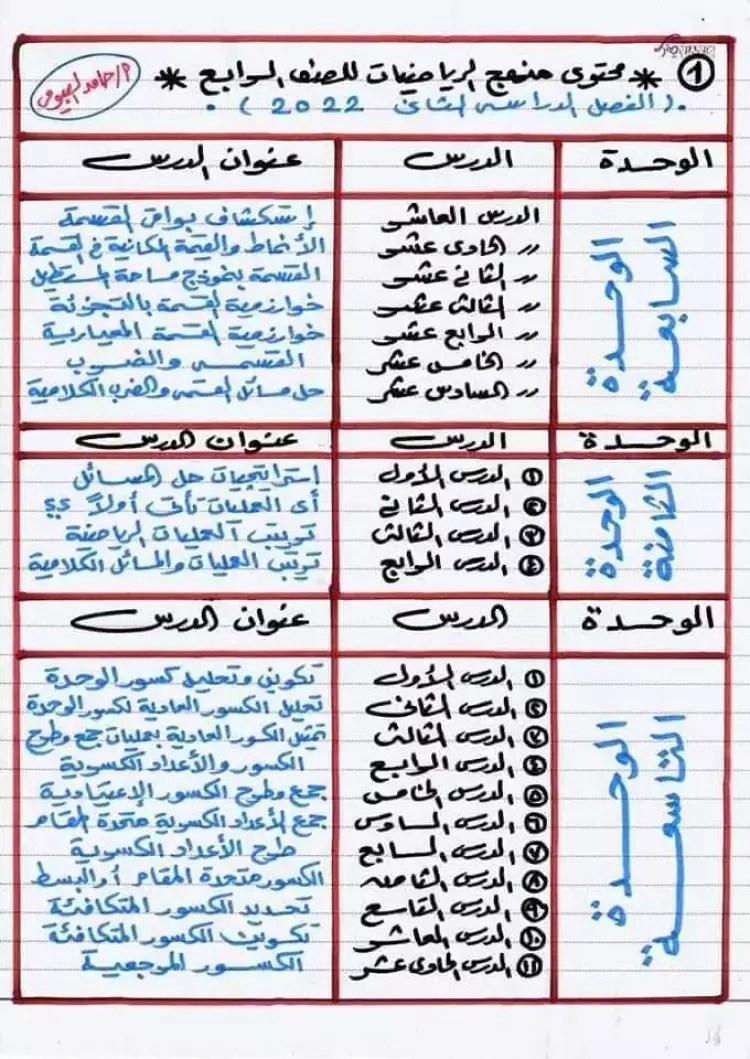 ① * محتوى منهج الرياضيات للصف الرابع *
(الفصل الدراسى الثانى 2022).
الوحدة الدرس عنوان الدرس
الوحدة السابعة
الدرس العاشر إستكشاف بواقى القسمة
〃 الحادى عشر الأنماط والقيمة المكانية فى القسمة
〃 الثانى عشر القسمة بنموذج مساحة المستطيل
〃 الثالث عشر خوارزمية القسمة بالتجزئة
〃 الرابع عشر خوارزمية القسمة المعيارية
〃 الخامس عشر القسمة والضرب
〃 السادس عشر حل مسائل القسمة والضرب الكلامية
الوحدة الدرس عنوان الدرس
الوحدة الثامنة
① الدرس الأول إستراتيجيات حل المسائل
② الدرس الثانى أى العمليات تأتى أولاً ؟؟
③ الدرس الثالث ترتيب العمليات الرياضية
④ الدرس الرابع ترتيب العمليات والمسائل الكلامية
الوحدة الدرس عنوان الدرس
الوحدة التاسعة
① الدرس الأول تكوين وتحليل كسور الوحدة
② الدرس الثانى تحليل الكسور العادية لكسور الوحدة
③ الدرس الثالث تمثيل الكسور العادية بعمليات جمع وطرح
④ الدرس الرابع الكسور والأعداد الكسرية
⑤ الدرس الخامس جمع وطرح الكسور الإعتيادية
⑥ الدرس السادس جمع الأعداد الكسرية متحدة المقام
⑦ الدرس السابع طرح الأعداد الكسرية
⑧ الدرس الثامن الكسور متحدة المقام أو البسط
⑨ الدرس التاسع تحديد الكسور المتكافئة
⑩ الدرس العاشر تكوين الكسور المتكافئة
⑪ الدرس الحادى عشر الكسور المرجعية